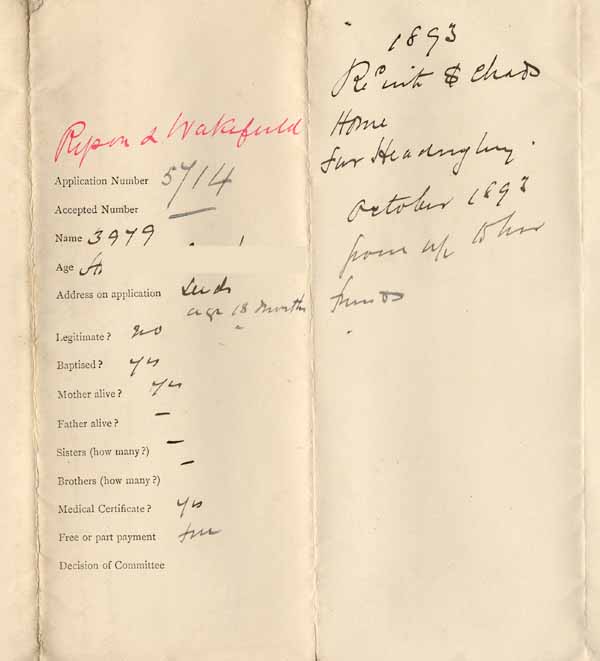 Ripon & Wakefield
Application Number 5714
Accepted Number —
Name 3979
Age
Address on application Leeds
age 18 months
Legitimate? No
Baptised? Yes
Mother alive? Yes
Father alive? —
Sisters (how many?) —
Brothers (how many?) —
Medical Certificate? Yes
Free or part payment free
Decision of Committee
1893
Rec'd into St Chads
Home
Far Headingley.
October 1893
given up to her
friends